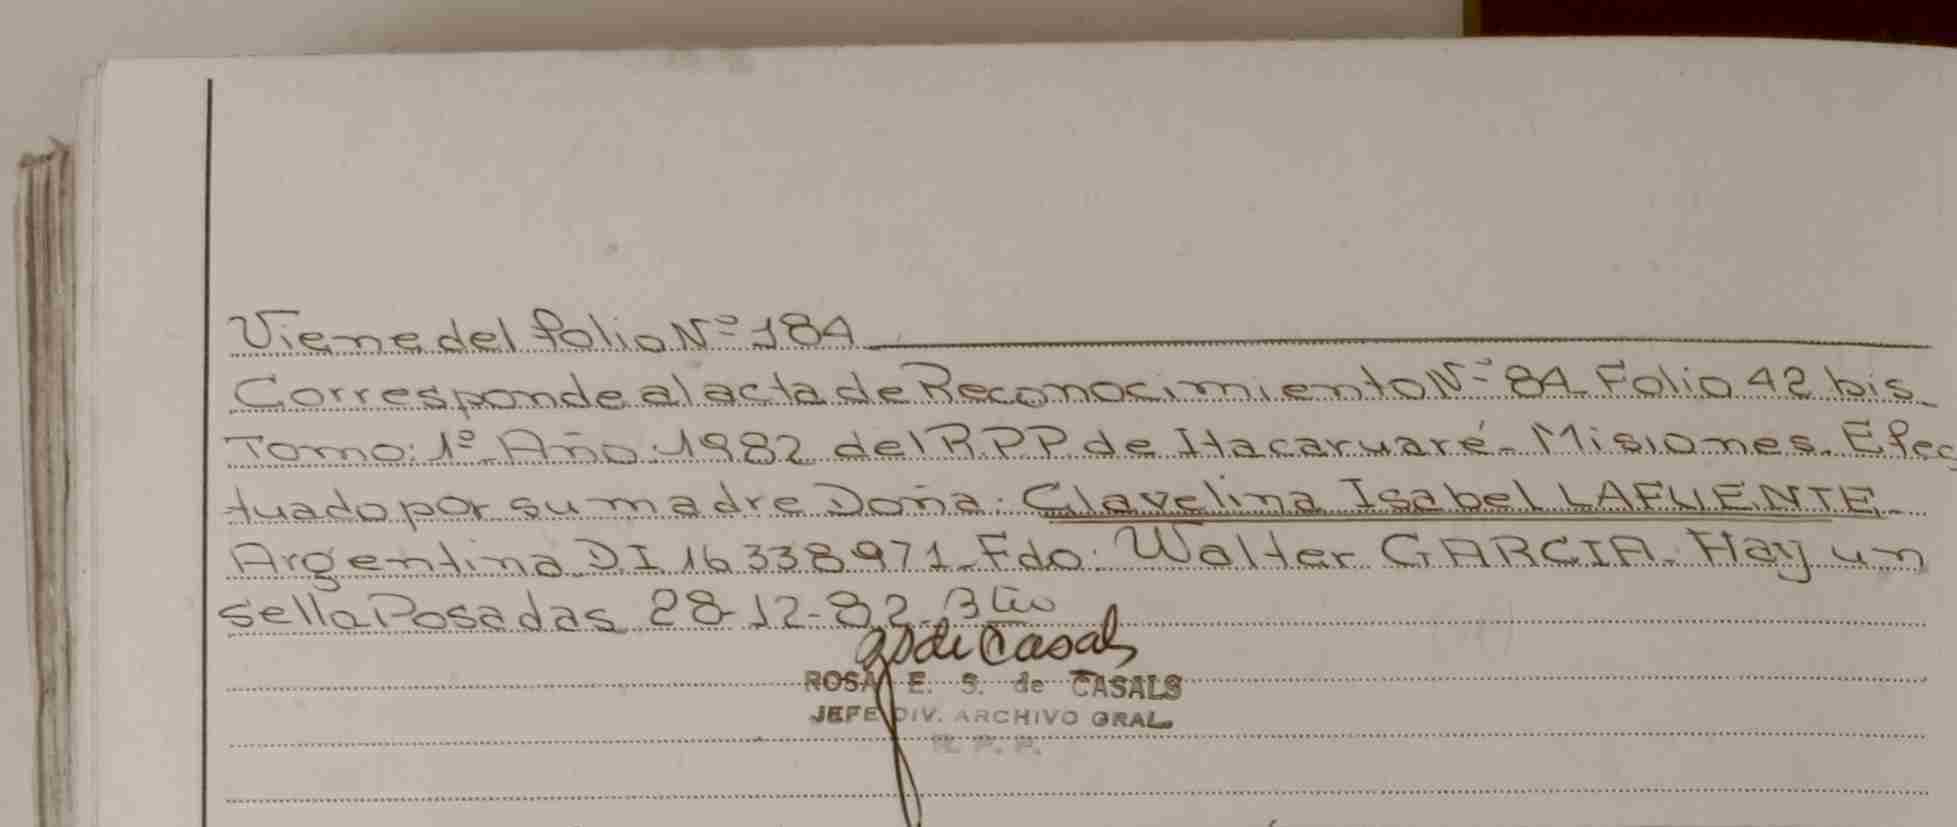 Viene del folio Nº 184
Corresponde al acta de Reconocimiento Nº 84 Folio 42 bis
Tomo: 1º Año: 1982 del R.P.P. de Itacaruaré - Misiones. Efec
tuado por su madre Doña: Clavelina Isabel LAFUENTE
Argentina DI 16 338 971 - Fdo: Walter GARCIA. Hay un
sello Posadas 28-12-82
ROSA E. S. de CASALS
JEFE DIV. ARCHIVO GRAL.
R. P. P.